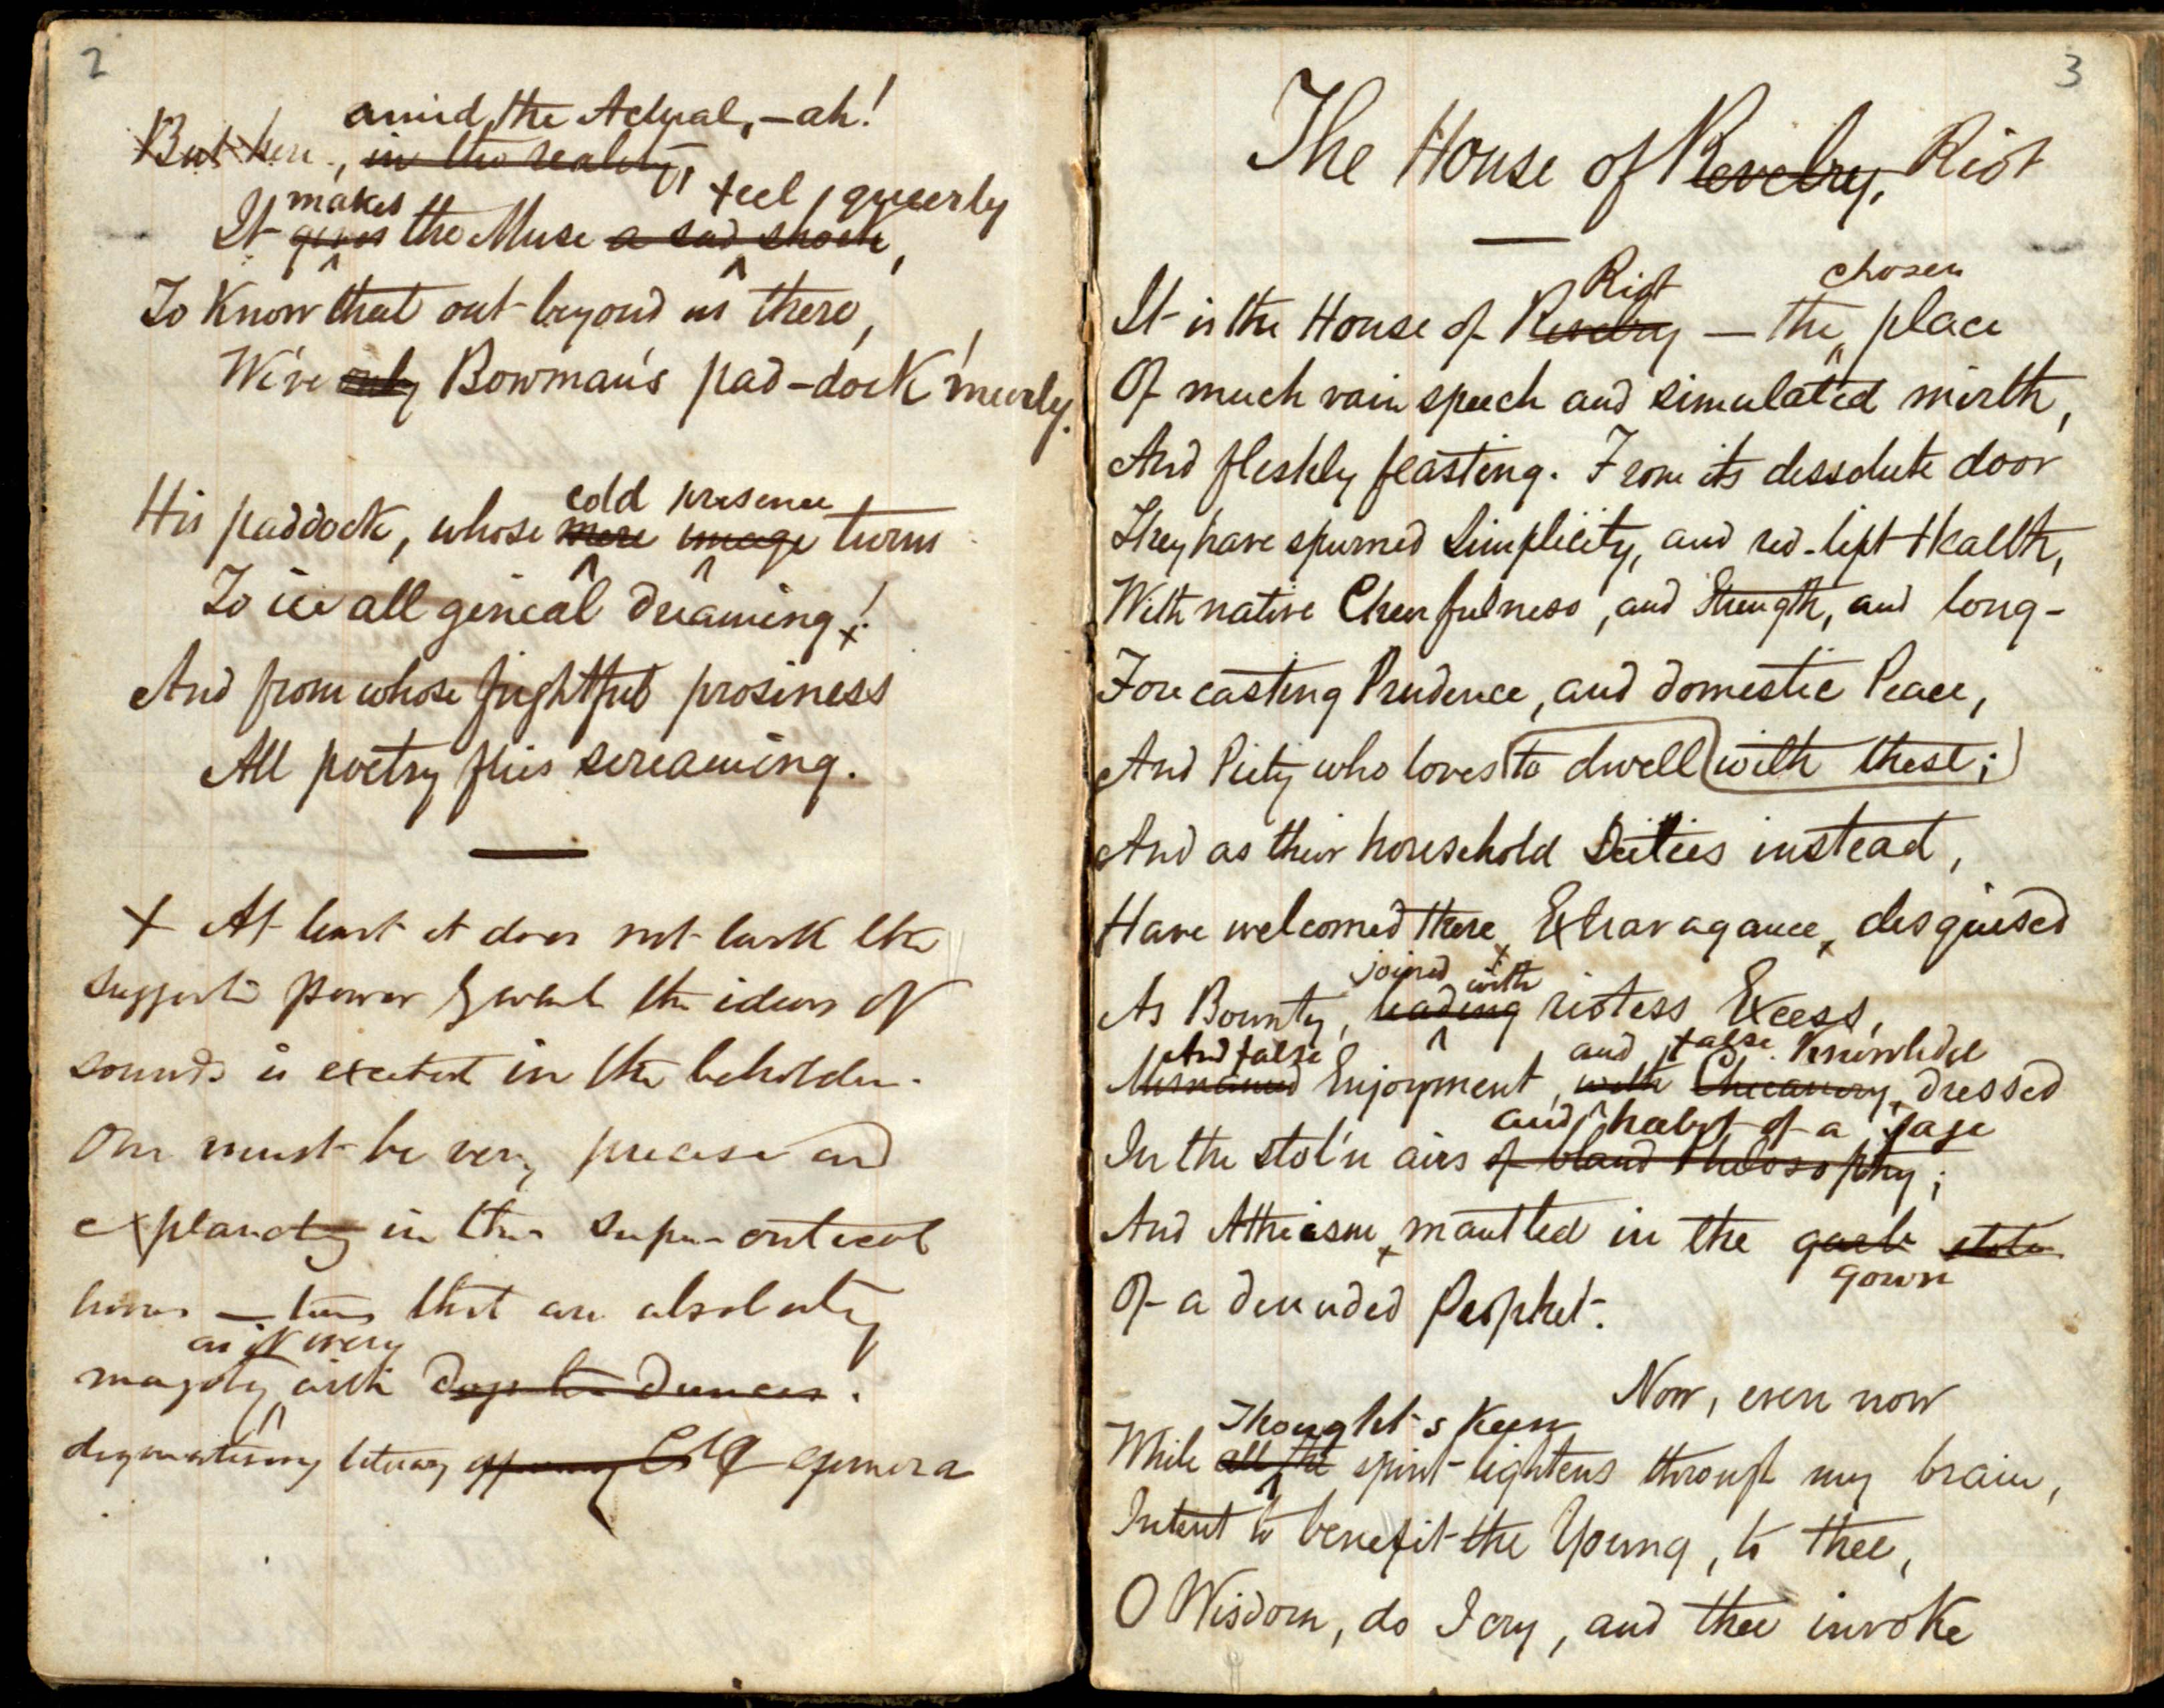 2
amid the Actual, — ah!
But here, in the reality,
makes feel queerly
It gives the Muse a sad shock,
To Know that out beyond us there,
We've only Bowman's pad-dock! merely.
cold presence
His paddock, whose mere image turns
To ice all genial dreaming!
And from whose frightful prosiness
All poetry flies screaming.
+ At least it does not lack the
power by which the ideas of
sounds is excited in the beholder.
One must be very precise and
explanatory in these super-critical
times — times that are absolutely
as it were
magoty with
dogmatising literary
3
The House of Revelry, Riot
Riot chosen
It is the House of Revelry — the place
Of much vain speech and simulated mirth,
And fleshly feasting. From its dissolute door
They have spurned Simplicity, and red-lipt Health,
With native Cheerfulness, and Strength, and long-
Forecasting Prudence, and domestic Peace,
And Piety who loves to dwell with these;
And as their household Deities instead,
Have welcomed there Extravagance, disguised
joined with
As Bounty, leading riotess Excess,
And false and false Knowledge
Misnamed Enjoyment, with Chicanery, dressed
and habit of a Sage
In the stol'n airs of bland Philosophy;
And Atheism, mantled in the garb stole
gown
Of a denuded Prophet.
Now, even now
Thought's Keen
While all the spirit lightens through my brain,
Intent to benefit the Young, to thee,
O Wisdom, do I cry, and thee invoke